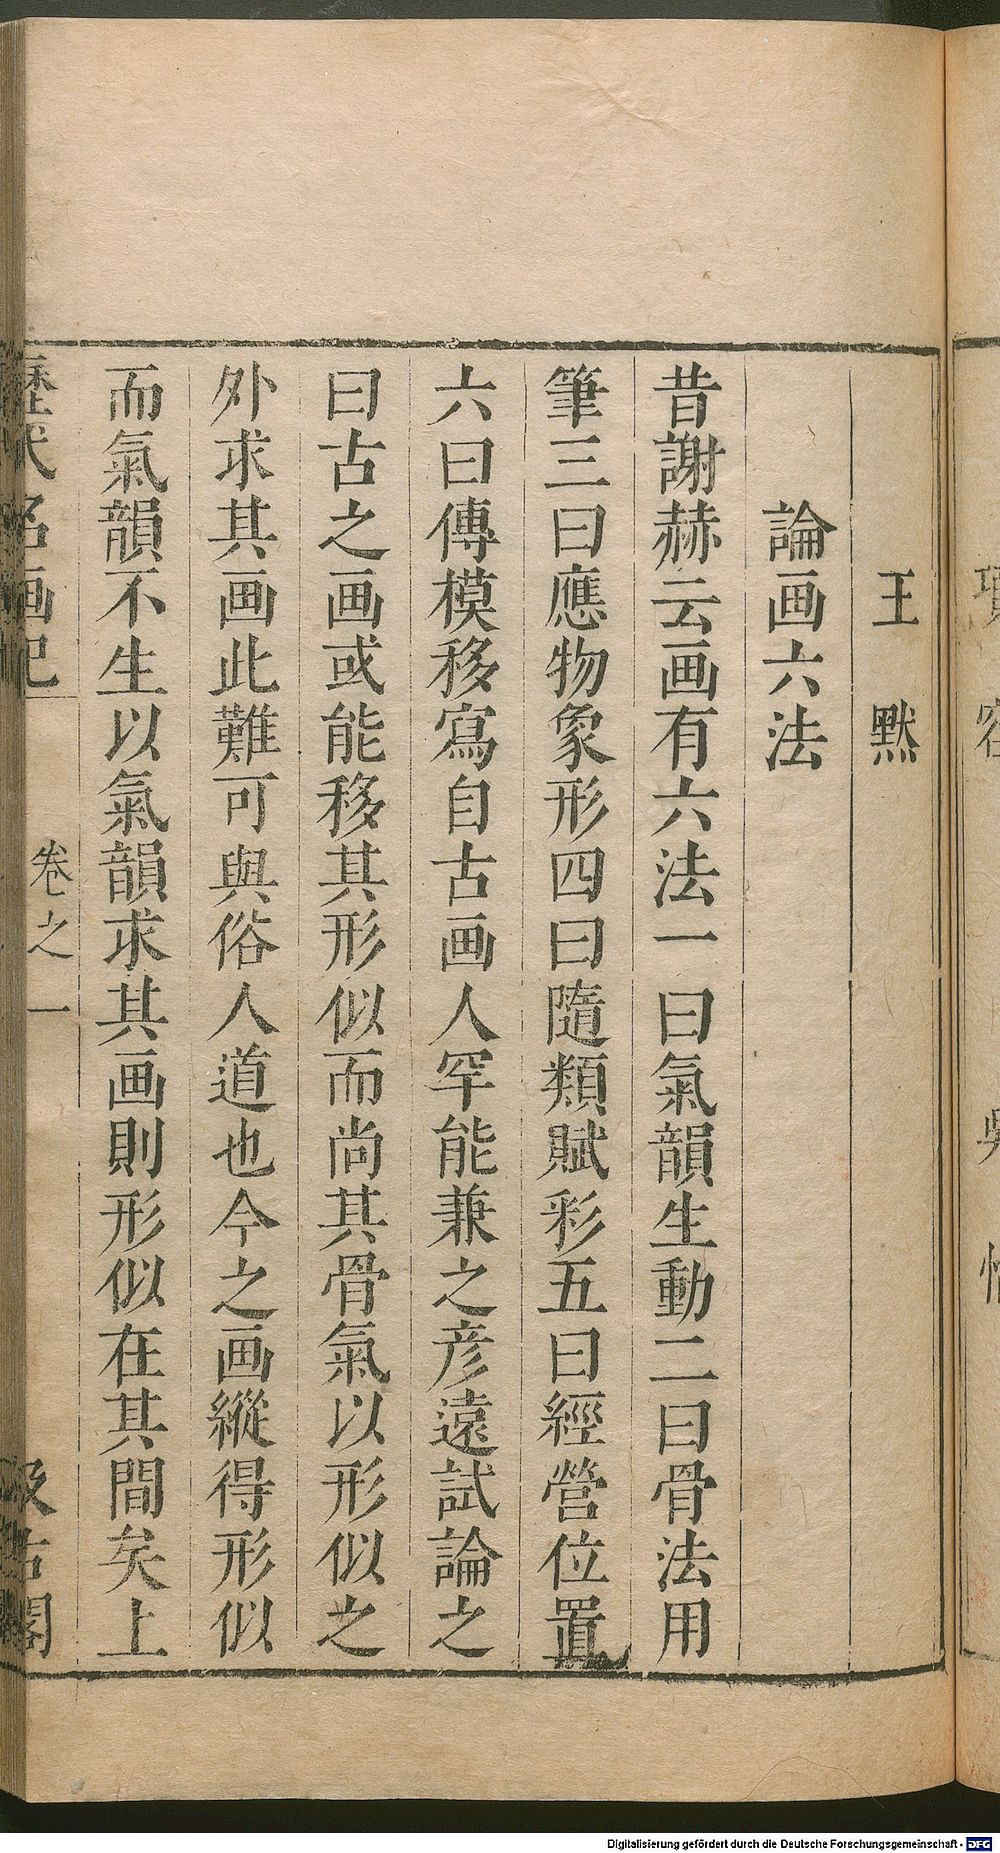 王　黙
論画六法
昔謝赫云画有六法一曰氣韻生動二曰骨法用
筆三曰應物象形四曰隨類賦彩五曰經營位置
六曰傳模移寫自古画人罕能兼之彦遠試論之
曰古之画或能移其形似而尚其骨氣以形似之
外求其画此難可與俗人道也今之画縱得形似
而氣韻不生以氣韻求其画則形似在其間矣上
歷代名画記　卷之一　汲古閣
Digitalisierung gefördert durch die Deutsche Forschungsgemeinschaft - DFG